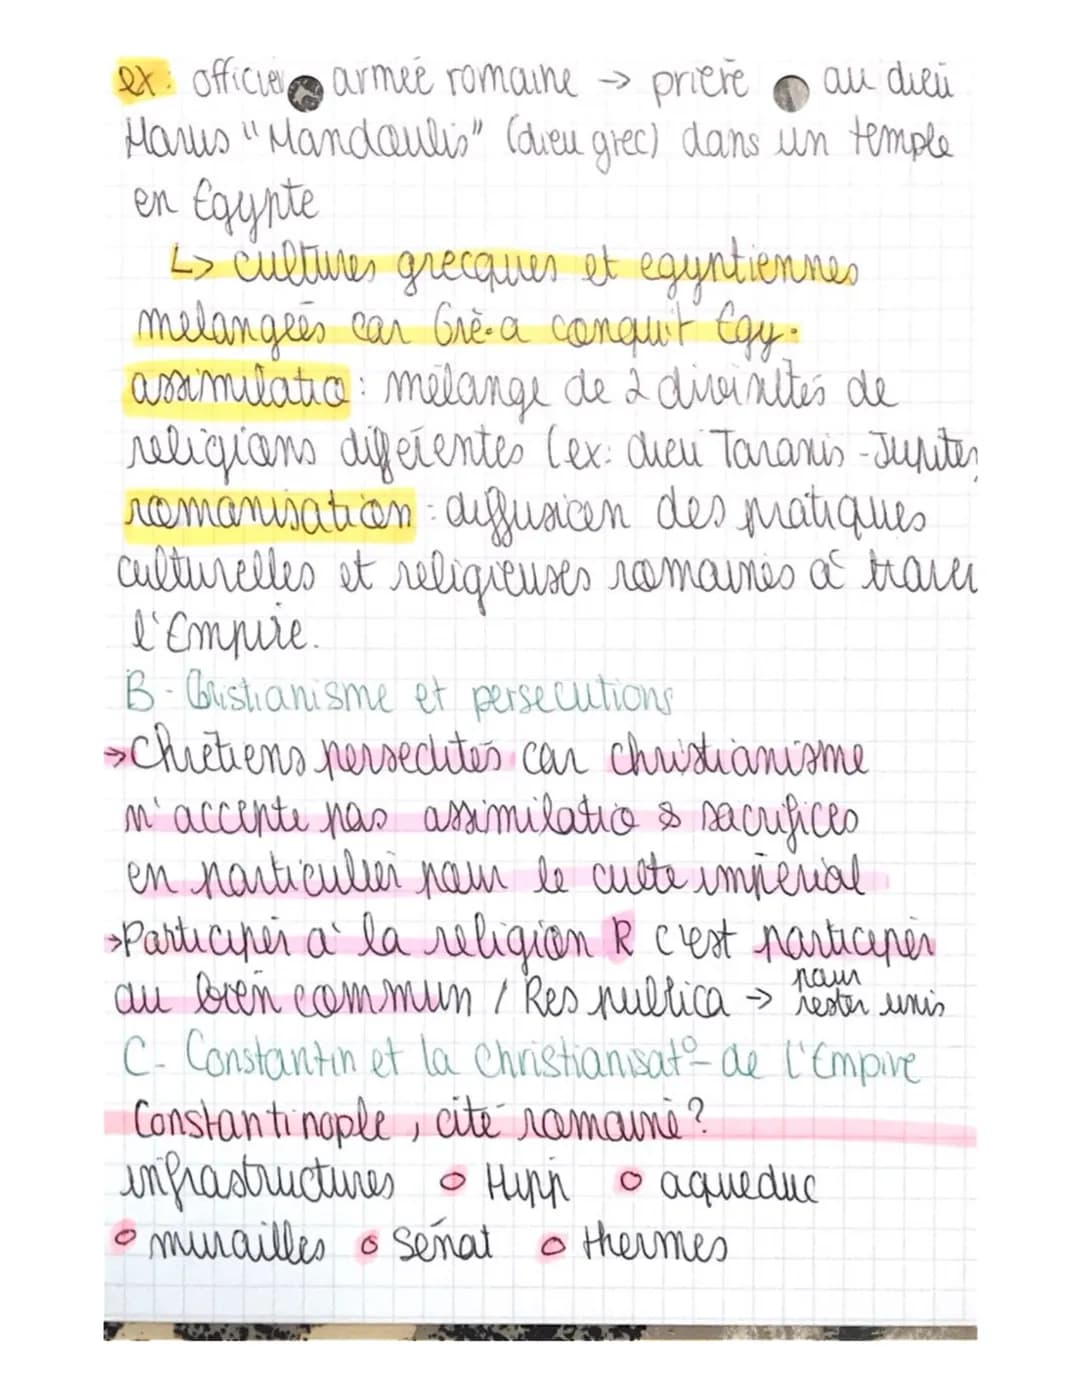 ex: officier armée romaine → prière au dieu
Harus "Mandoulis" (dieu grec) dans un temple
en Egypte
↳ cultures grecques et egyptiennes
mélangées car Grè. a conquit Egy.
assimilatio : mélange de 2 divinités de
religions différentes (ex: dieu Taranis - Jupiter
romanisation : diffusion des pratiques
culturelles et religieuses romaines à traver
l'Empire.
B - Christianisme et persecutions
→ Chrétiens persécutés car christianisme
n'accepte pas assimilatio & sacrifices
en particulier pour le culte impérial
→ Participer à la religion R c'est participer
au bien commun / Res publica → pour rester unis
C - Constantin et la Christianisat° de l'Empire
Constantinople, cité romaine ?
infrastructures o Hipp o aqueduc
o murailles o Sénat o thermes